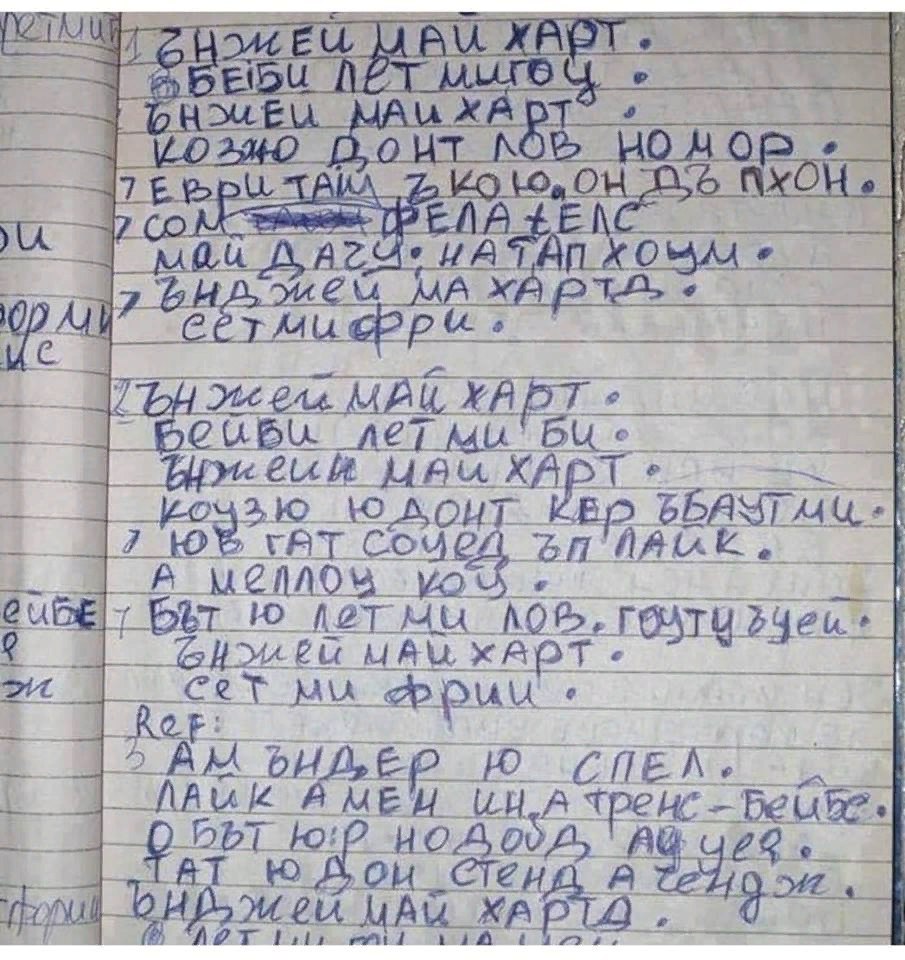 1 ЪНЖЕИ МАЙ ХАРТ.
БЕЙБИ ЛЕТ МИГОУ.
ЪНЖЕИ МАИ ХАРТ.
КОЗЖЮ ДОНТ ЛОВ НОМОР.
7 ЕВРИ ТАЙМ ЪКОЮ. ОН ДЪ ПХОН.
СОМ ФЕЛА ЕЛС
МАЙ ДАЧУ. НАТАП ХОУМ.
ЪНДЖЕЙ МА ХАРТД.
СЕТМИ ФРИ.
2 ЪНЖЕЙ МАЙ ХАРТ.
БЕЙБИ ЛЕТ МИ БИ.
ЪНЖЕИН МАИ ХАРТ.
КОУЗЮ ЮДОНТ КЕР ЪБАУТМИ.
ЮВ ГАТ СОУЕД ЪП ЛАЙК.
А МЕЛЛОУ КОУ.
7 БЪТ Ю ЛЕТ МИ ЛОВ. ГОУТУ ЪУЕЙ.
ЪНЖЕЙ МАЙ ХАРТ.
СЕТ МИ ФРИИ.
Ref:
АМ ЪНДЕР Ю СПЕЛ.
ЛАЙК А МЕН ИН А ТРЕНС-БЕЙБЕ.
О БЪТ Ю:Р НО
ТАТ Ю ДОН СТЕНД А ЧЕНДЖ.
ЪНДЖЕЙ МАЙ ХАРТД.